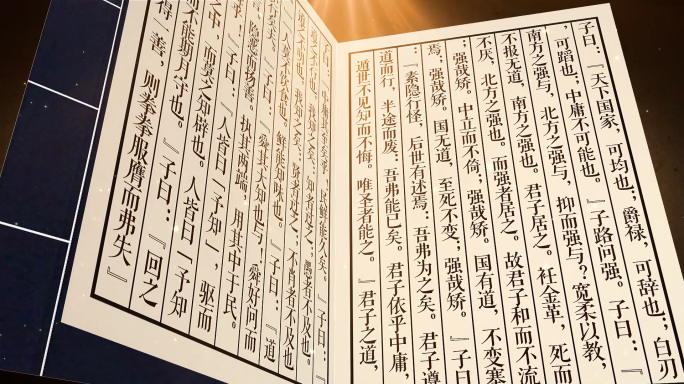 子曰:『天下国家,可均也;爵禄,可辞也;白刃
可蹈也;中庸不可能也。』子路问强。子曰:『
南方之强与,北方之强与,抑而强与?宽柔以教,
不报无道,南方之强也。君子居之。衽金革,死而
不厌,北方之强也。而强者居之。故君子和而不流
强哉矫。中立而不倚,强哉矫。国有道,不变塞
焉,强哉矫。国无道,至死不变,强哉矫。』子曰
:『素隐行怪,后世有述焉:吾弗为之矣。君子遵
道而行,半途而废:吾弗能已矣。君子依乎中庸,
遁世不见知而不悔。唯圣者能之。』君子之道,
子曰:『中庸其至矣乎,民鲜能久矣。』子曰:
道之不行也,我知之矣:知者过之;愚者不及也。
道之不明也,我知之矣:贤者过之;不肖者不及也
人莫不饮食也。鲜能知味也。』子曰:『道
其不行矣夫。』子曰:『舜其大知也与!舜好问而
隐恶而扬善,执其两端,用其中于民。
乎!』子曰:『人皆曰「予知」,驱而
之中,而莫之知辟也。人皆曰「予知
而不能期月守也。』子曰:『回之
得一善,则拳拳服膺而弗失』